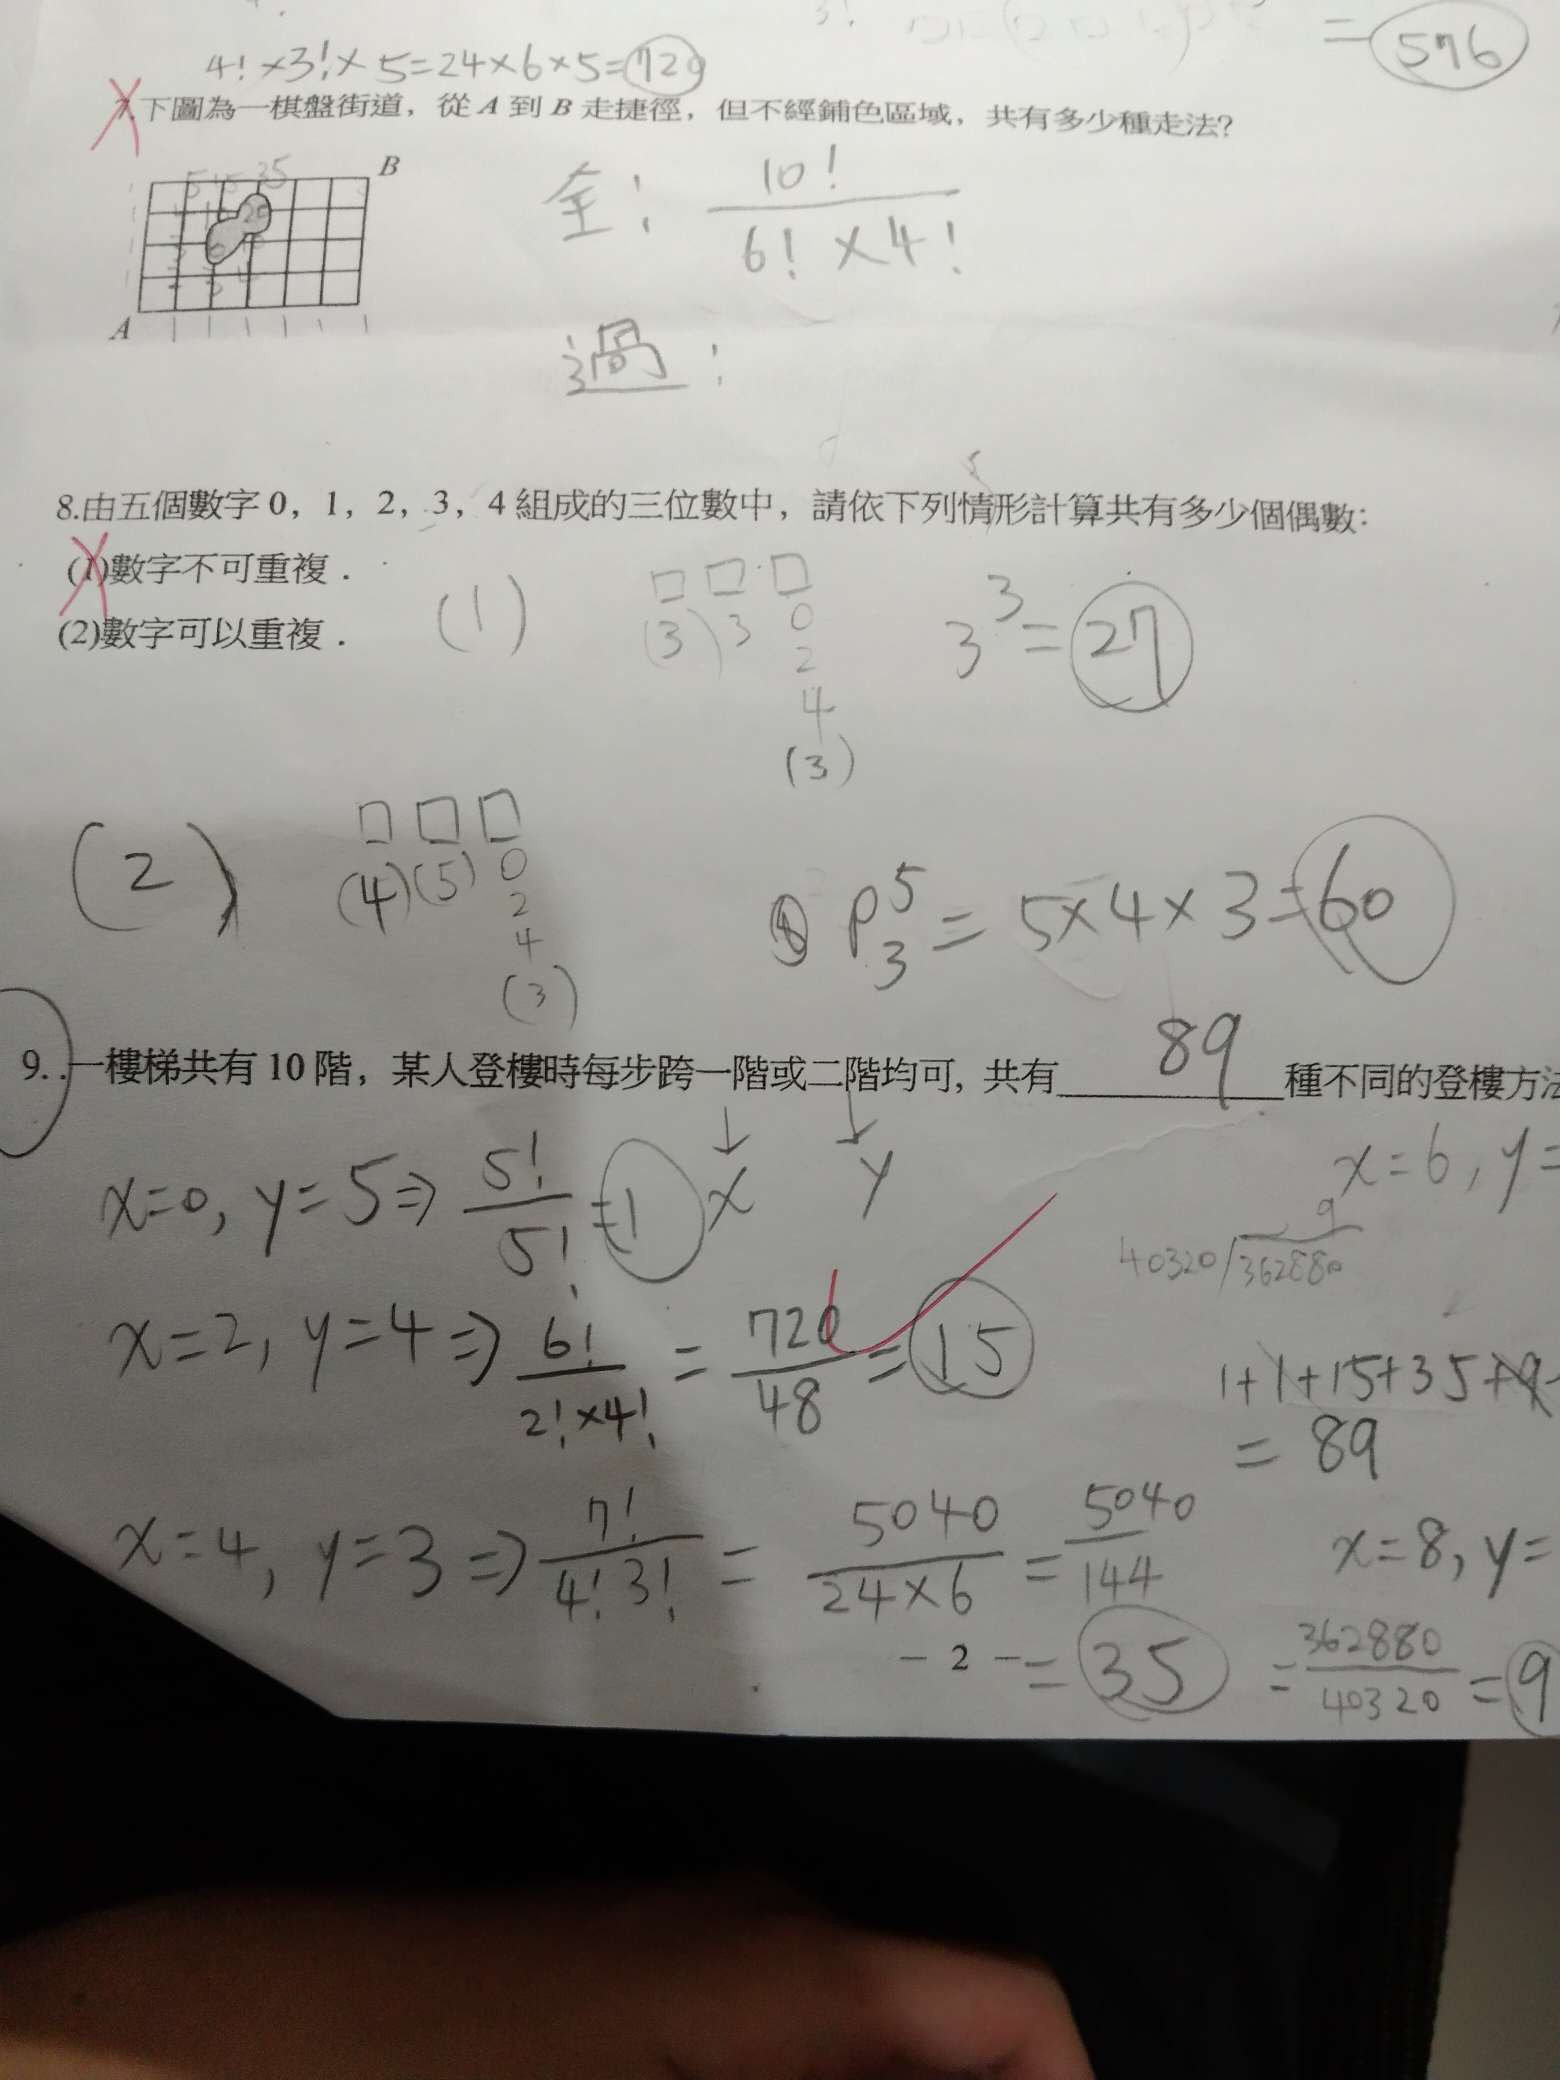 = 576
4! ×3! × 5 = 24 × 6 × 5 = 720
7.下圖為一棋盤街道，從 A 到 B 走捷徑，但不經鋪色區域，共有多少種走法?
B
A
全: 10! / 6! × 4!
過:
8.由五個數字 0，1，2，3，4 組成的三位數中，請依下列情形計算共有多少個偶數:
(1)數字不可重複．
(2)數字可以重複．
(1) □ □ □
(3) 3 0
2
4
(3)
3³ = 27
(2) □ □ □
(4) (5) 0
2
4
(3)
P⁵₃ = 5 × 4 × 3 = 60
9. .一樓梯共有 10 階，某人登樓時每步跨一階或二階均可, 共有 89 種不同的登樓方法
x y
x=0, y=5 ⇒ 5!/5! = 1
x=6, y=
9
40320 / 362880
x=2, y=4 ⇒ 6! / 2!×4! = 720/48 = 15
1+1+15+35+
= 89
x=4, y=3 ⇒ 7! / 4! 3! = 5040 / 24×6 = 5040/144
= 35
x=8, y=
= 362880/40320 = 9
– 2 –